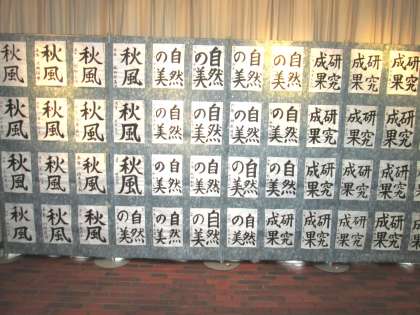 秋風 秋風 秋風 秋風 自然の美 自然の美 自然の美 自然の美 研究成果 研究成果 研究成果
秋風 秋風 秋風 秋風 自然の美 自然の美 自然の美 自然の美 研究成果 研究成果 研究成果
秋風 秋風 秋風 秋風 自然の美 自然の美 自然の美 自然の美 研究成果 研究成果 研究成果
秋風 秋風 秋風 自然の美 自然の美 自然の美 自然の美 研究成果 研究成果 研究成果 研究成果